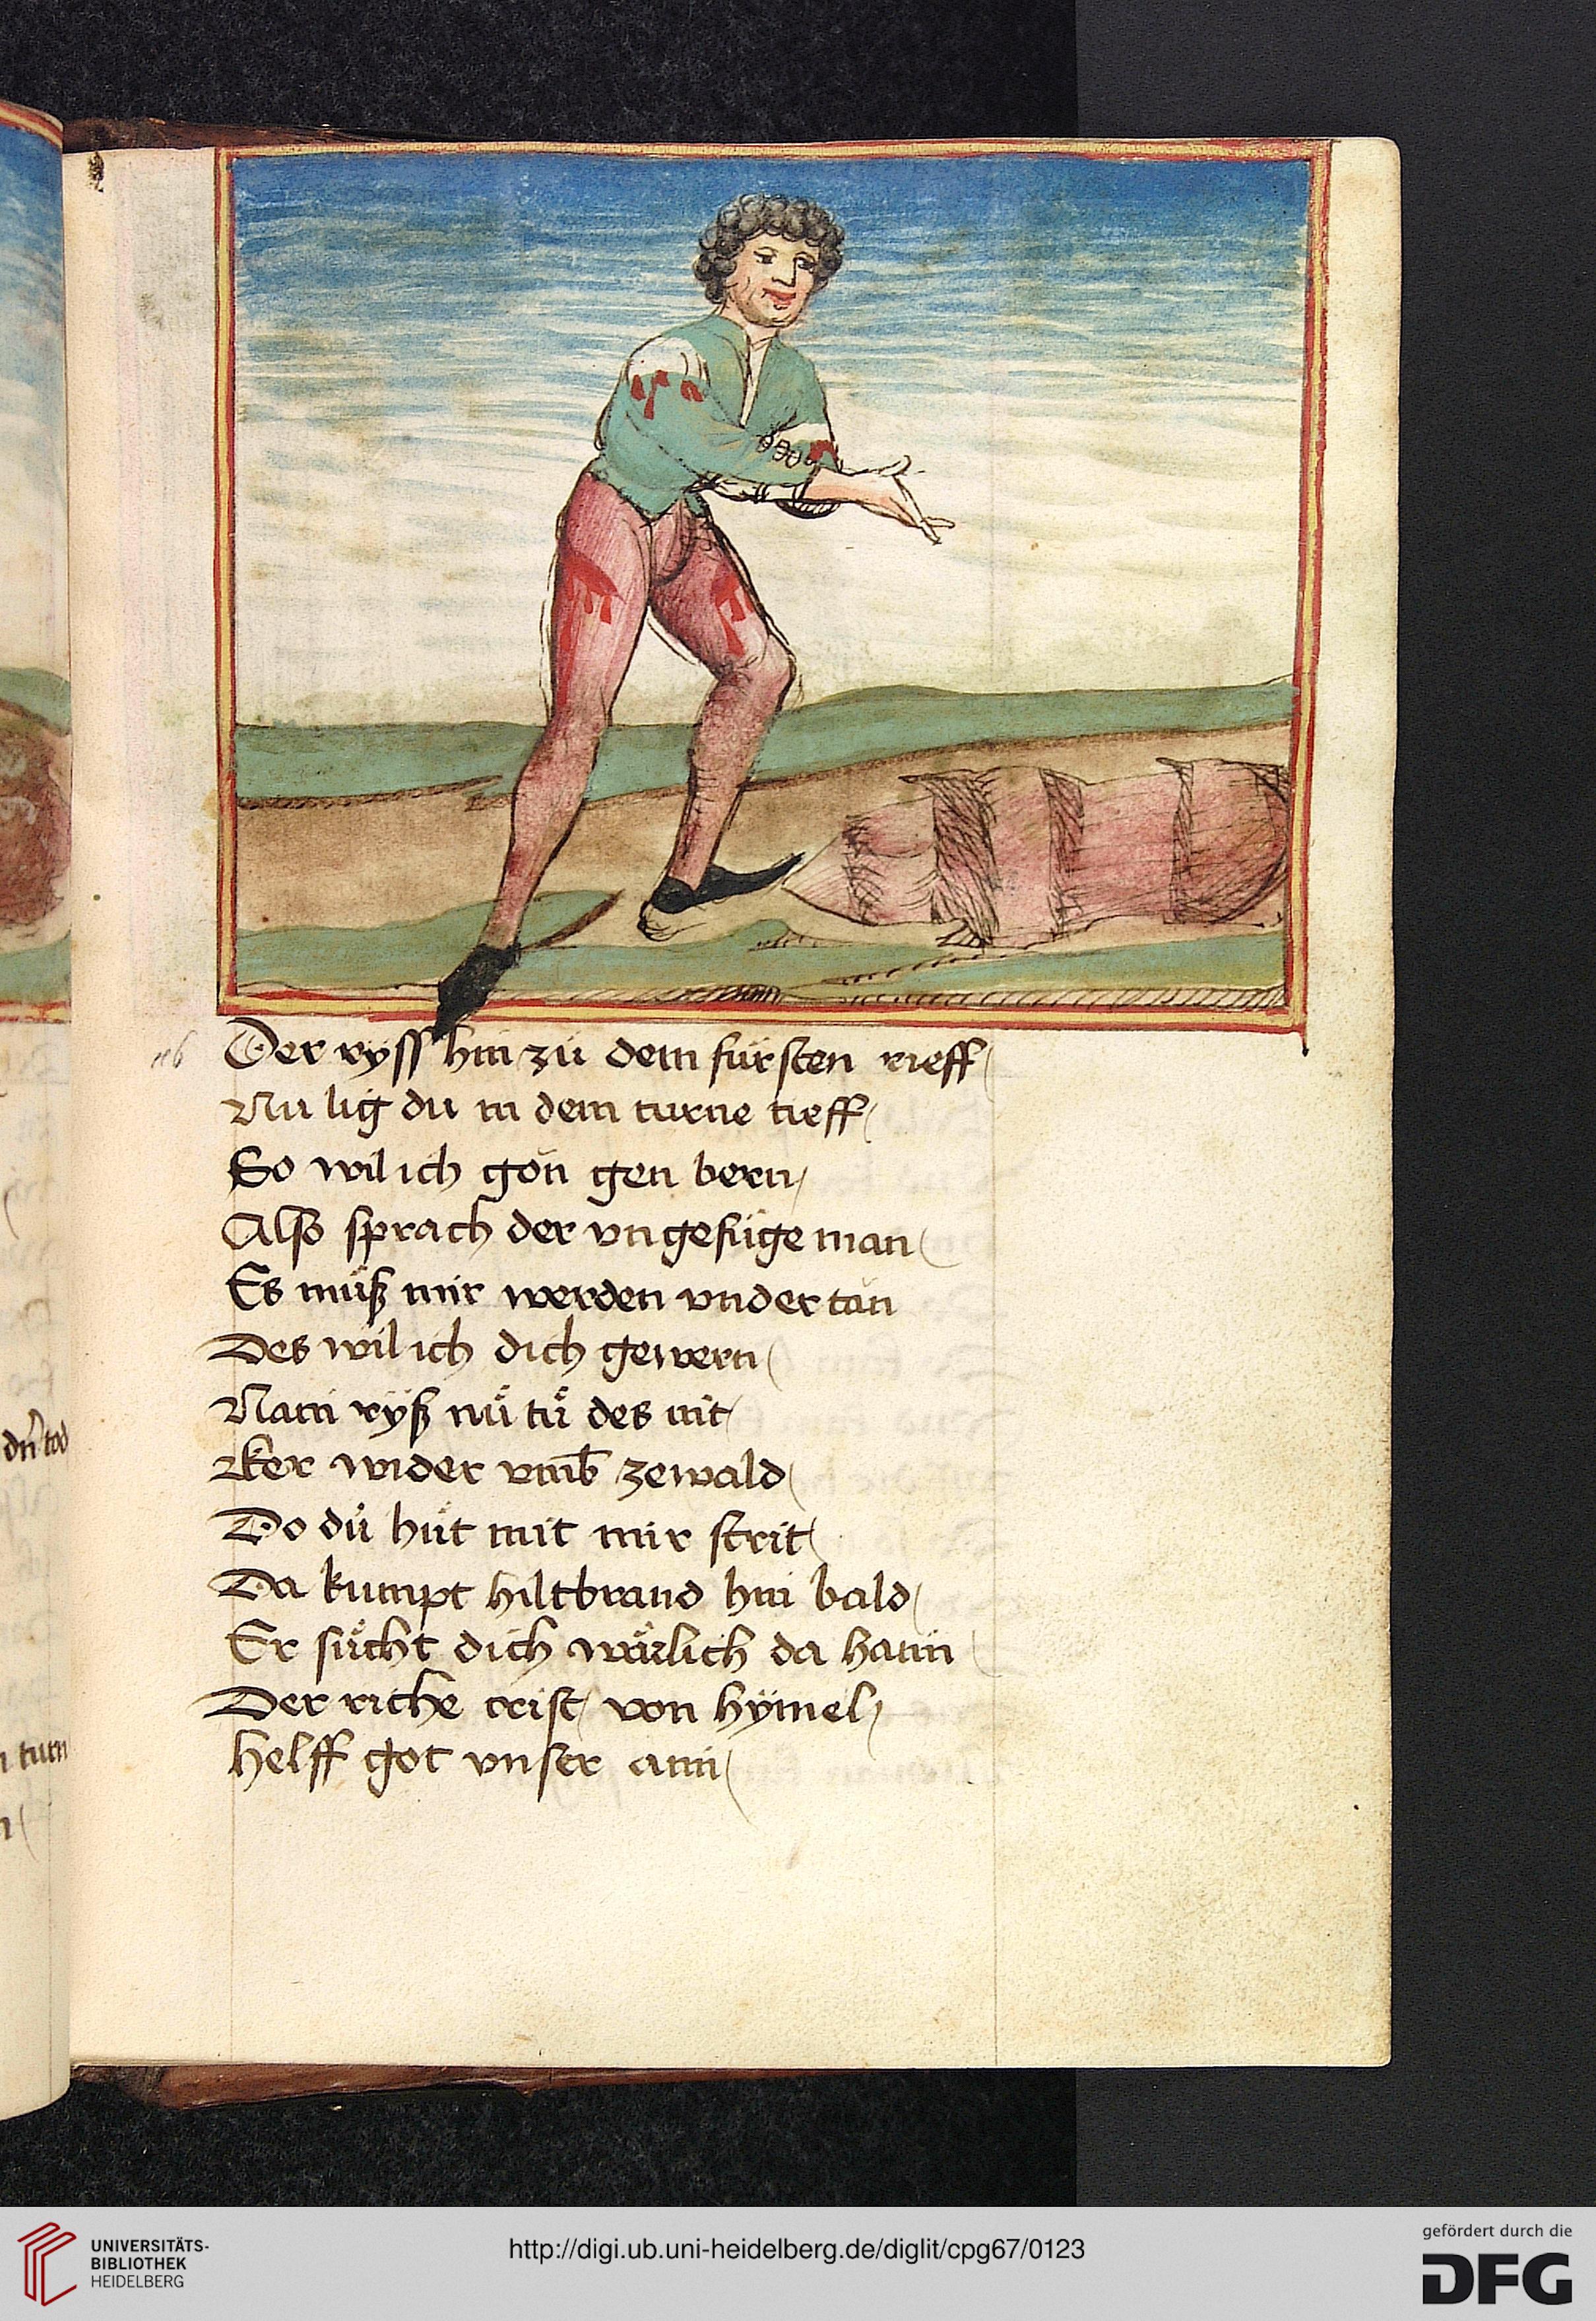 Der ryss hin zů dem fürsten rieff
Nu lig du in dem turne tieff
So wil ich gon gen bern
Also sprach der vngefüge man
Es můß mir werden vnder tan
Des wil ich dich gewern
Nain ryß nů tů des nit
Ker wider vmb ze wald
Do dů hüt mit mir strit
Da kumpt hiltbrand hin bald
Er sůcht dich wärlich da hain
Der riche crist von hÿmel
Helff got vnser ain
dñ tod
turn
UNIVERSITÄTS-
BIBLIOTHEK
HEIDELBERG
http://digi.ub.uni-heidelberg.de/diglit/cpg67/0123
gefördert durch die
DFG